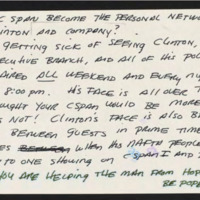 C SPAN BECOME THE PERSONAL NETWO
INTON AND COMPANY?
GETTING SICK OF SEEING CLINTON,
ECUTIVE BRANCH, AND ALL OF HIS POL
AIRED ALL WEEKEND AND EVERY NI
8:00 PM. HIS FACE IS ALL OVER T
OUGHT YOUR CSPAN WOULD BE MORE
S NOT! CLINTON'S FACE IS ALSO B
BETWEEN GUESTS IN PRIME TIME
ES WHEN HIS NAFTA PEOPLE
TO ONE SHOWING ON CSPAN I AND
YOU ARE HELPING THE MAN FROM HOP
BE POP